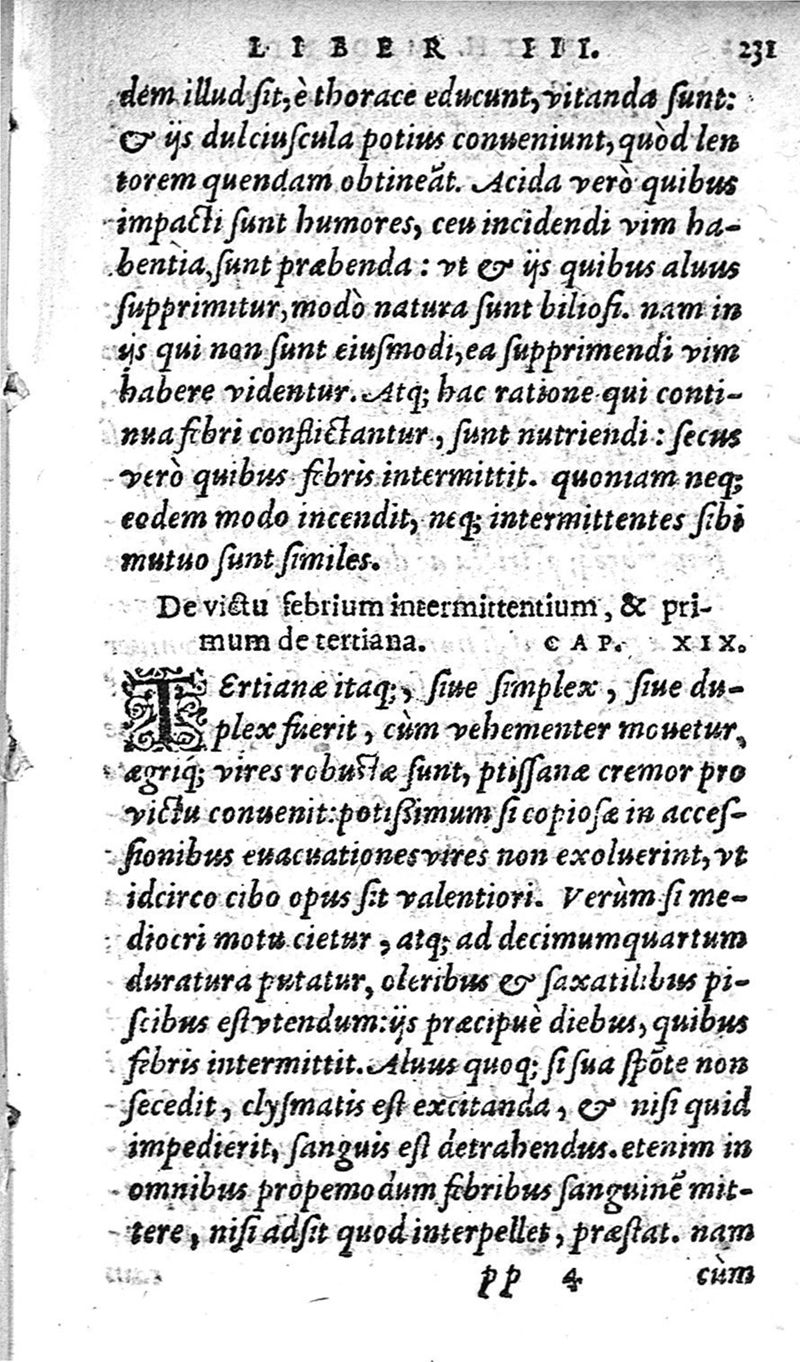 LIBER III. 231
dem illud sit, è thorace educunt, vitanda sunt:
& ijs dulciuscula potius conueniunt, quòd len
torem quendam obtineāt. Acida verò quibus
impacti sunt humores, ceu incidendi vim ha-
bentia, sunt præbenda: vt & ijs quibus aluus
supprimitur, modò natura sunt biliosi. nam in
ijs qui non sunt eiusmodi, ea supprimendi vim
habere videntur. Atq; hac ratione qui conti-
nua febri conflictantur, sunt nutriendi: secus
verò quibus febris intermittit. quoniam neq;
eodem modo incendit, neq; intermittentes sibi
mutuo sunt similes.
De victu febrium intermittentium, & pri-
mum de tertiana. CAP. XIX.
TErtianæ itaq;, siue simplex, siue du-
plex fuerit, cùm vehementer mouetur,
ægriq; vires robustæ sunt, ptissanæ cremor pro
victu conuenit: potissimum si copiosæ in acces-
sionibus euacuationes vires non exoluerint, vt
idcirco cibo opus sit valentiori. Verùm si me-
diocri motu cietur, atq; ad decimumquartum
duratura putatur, oleribus & saxatilibus pi-
scibus est vtendum: ijs præcipuè diebus, quibus
febris intermittit. Aluus quoq; si sua spōte non
secedit, clysmatis est excitanda, & nisi quid
impedierit, sanguis est detrahendus. etenim in
omnibus propemodum febribus sanguinē mit-
tere, nisi adsit quod interpellet, præstat. nam
pp 4 cùm